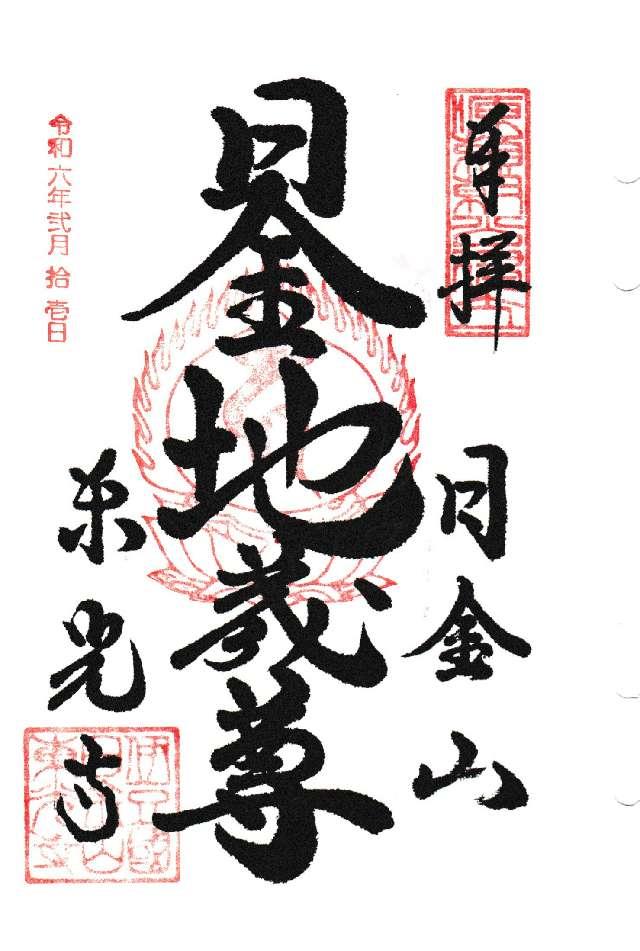 奉拝
日金山
日金地蔵尊
東光寺
令和六年弐月拾壱日